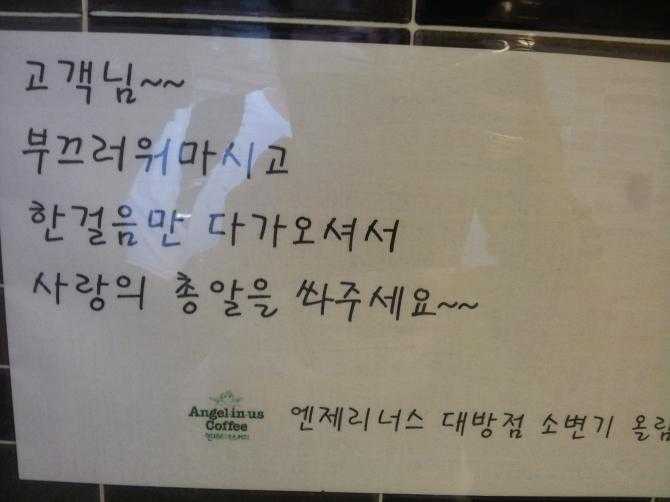 고객님~~
부끄러워마시고
한걸음만 다가오셔서
사랑의 총알을 쏴주세요~~
Angel in us
Coffee
엔제리너스 대방점 소변기 올림